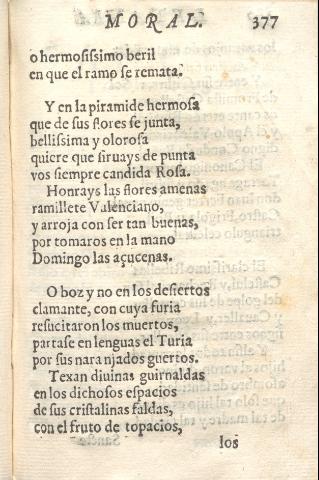 MORAL. 377
o hermosissimo beril
en que el ramo se remata.
Y en la piramide hermosa
que de sus flores se junta,
bellissima y olorosa
quiere que siruays de punta
vos siempre candida Rosa.
Honrays las flores amenas
ramillete Valenciano,
y arroja con ser tan buenas,
por tomaros en la mano
Domingo las açucenas.
O boz y no en los desiertos
clamante, con cuya furia
resucitaron los muertos,
partase en lenguas el Turia
por sus nara njados guertos.
Texan diuinas guirnaldas
en los dichosos espacios
de sus cristalinas faldas,
con el fruto de topacios,
los